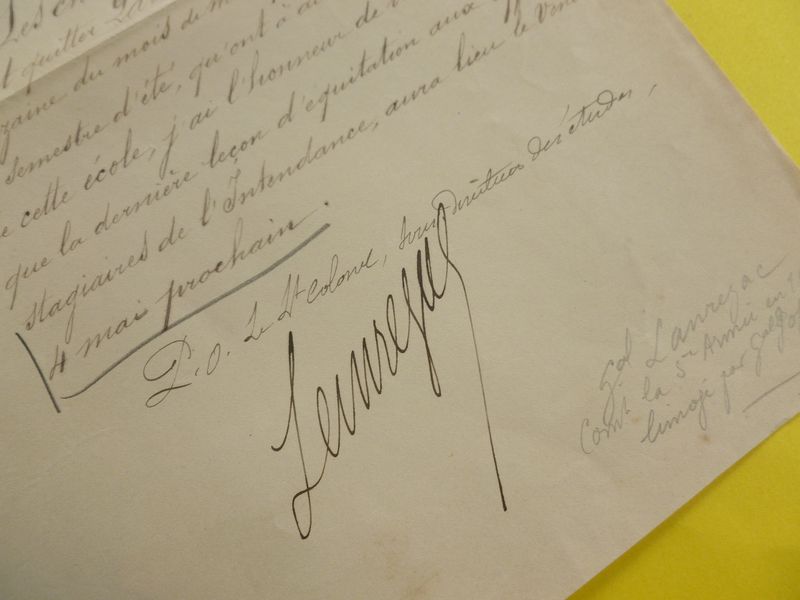 Les
t quitter
zaine du mois de m
semestre d'été, qu'ont à
e cette école, j'ai l'honneur de
que la dernière leçon d'équitation aux
stagiaires de l'Intendance, aura lieu le Vend
4 mai prochain.
P.O. Le Lt Colonel, sous-directeur des études,
Lanrezac
Gal Lanrezac
Comt la 5e Armée en 1
limogé par